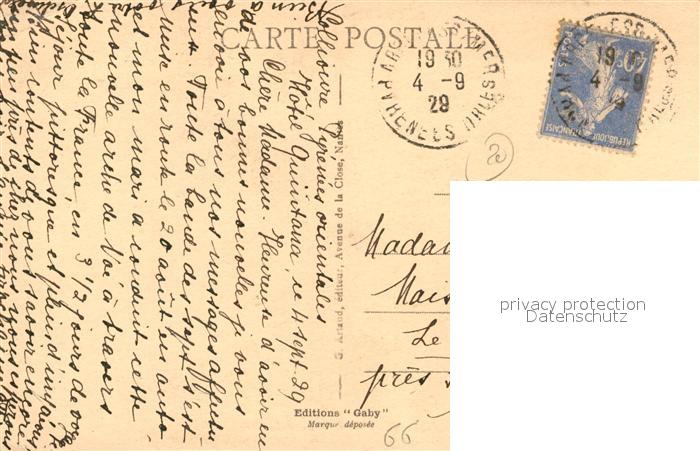 CARTE POSTALE
ARGELES-S-MER
19 30
4 - 9
29
PYRENEES ORLES
19 30
4 - 9
40c
REPUBLIQUE FRANÇAISE
Collioure Pyrénées orientales
Hôtel Quintana, le 4 sept. 29
Chère Madame. Heureuse d'avoir eu
de vos bonnes nouvelles je vous
envoie à tous nos messages affectu
eux. Toute la bande des sept s'est
mise en route le 20 août en auto
et mon mari a conduit cette
nouvelle arche de Noé à travers
toute la France, en 3 1/2 jours de
Séjour pittoresque et plein d'imprévu
G. Artaud, éditeur, Avenue de la Close, Nantes
Madam
Mais
Le
près
Editions "Gaby"
Marque déposée
66
privacy protection
Datenschutz